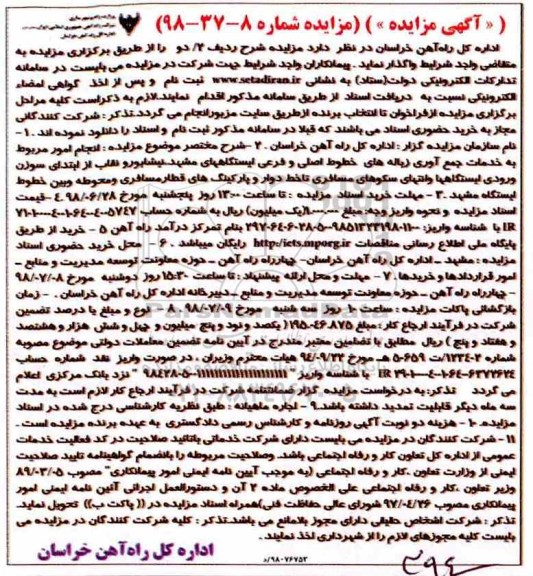 (« آگهی مزایده ») (مزایده شماره ۸-۳۷-۹۸)
اداره کل راه‌آهن خراسان در نظر دارد مزایده شرح ردیف ۲/ دو را از طریق برگزاری مزایده به
متقاضی واجد شرایط واگذار نماید. پیمانکاران واجد شرایط جهت شرکت در مزایده می بایست در سامانه
تدارکات الکترونیکی دولت(ستاد) به نشانی www.setadiran.ir ثبت نام و پس از اخذ گواهی امضاء
الکترونیکی نسبت به دریافت اسناد از طریق سامانه مذکور اقدام نمایند.لازم به ذکراست کلیه مراحل
برگزاری مزایده ازفراخوان تا انتخاب برنده ازطریق سایت مزبورانجام می گردد.تذکر: شرکت کنندگانی
مجاز به خرید حضوری اسناد می باشند که قبلا در سامانه مذکور ثبت نام و اسناد را دانلود نموده اند. ۱-
نام سازمان مزایده گزار : اداره کل راه آهن خراسان . ۲ -شرح مختصر موضوع مزایده : انجام امور مربوط
به خدمات جمع آوری زباله های خطوط اصلی و فرعی ایستگاههای مشهد،نیشابورو نقاب از ابتدای سوزن
ورودی ایستگاهها وانتهای سکوهای مسافری تاخط دوار و پارکینگ های قطارمسافری ومحوطه وبین خطوط
ایستگاه مشهد .۳ - مهلت دریافت اسناد مزایده : تا ساعت ۱۳:۰۰ روز پنجشنبه مورخ ۹۸/۰۶/۲۸ .۴ -قیمت
اسناد مزایده و نحوه واریز وجه:مبلغ ۱٫۰۰۰٫۰۰۰(یک میلیون) ریال به شماره حساب
IR با شناسه واریز: بنام تمرکز درآمد راه آهن ۵ - خرید از طریق
پایگاه ملی اطلاع رسانی مناقصات http:/iets.mporg.ir رایگان میباشد . ۶ - محل خرید حضوری اسناد
مزایده : مشهد ـ اداره کل راه آهن خراسان- چهارراه راه آهن - حوزه معاونت توسعه مدیریت و منابع ـ
امور قراردادها و خریدها . ۷ - مهلت و محل ارائه پیشنهاد : تا ساعت ۱۵:۳۰ روز دوشنبه مورخ ۹۸/۰۷/۰۸
- چهارراه راه آهن - حوزه معاونت توسعه مدیریت و منابع - دبیرخانه اداره کل راه آهن خراسان . - زمان
بازگشائی پاکات مزایده : ساعت ۱۰ روز سه شنبه مورخ ۹۸/۰۷/۰۹ . ۸ - نوع و مبلغ یا درصد تضمین
شرکت در فرآیند ارجاع کار : مبلغ ۱۹۵٫۰۴۶٫۸۷۵ (یکصد و نود و پنج میلیون و چهل و شش هزار و هشتصد
و هفتاد و پنج ) ریال مطابق با تضمین معتبر مندرج در آیین نامه تضمین معاملات دولتی موضوع مصوبه
شماره ۱۲۳۴۰۲/ت۵۰۶۵۹ هـ مورخ ۹۴/۰۹/۲۲ هیات محترم وزیران . در صورت واریز نقد شماره حساب
IR با شناسه واریز نزد بانک مرکزی اعلام
می گردد تذکر: به درخواست مزایده گزار ضمانتنامه شرکت در فرآیند ارجاع کار لازم است به مدت
سه ماه دیگر قابلیت تمدید داشته باشد.۹ - اجاره ماهیانه : طبق نظریه کارشناسی درج شده در اسناد
مزایده.۱۰ - هزینه دو نوبت آگهی روزنامه و کارشناس رسمی دادگستری به عهده برنده مزایده است .
۱۱- شرکت کنندگان در مزایده می بایست دارای شرکت خدماتی باتائید صلاحیت در کد فعالیت خدمات
عمومی از اداره کل تعاون کار و رفاه اجتماعی باشد. وصلاحیت مربوطه را بانضمام گواهینامه تایید صلاحیت
ایمنی از وزارت تعاون ،کار و رفاه اجتماعی (به موجب آیین نامه ایمنی امور پیمانکاری" مصوب ۸۹/۰۳/۰۵
وزیر تعاون ،کار و رفاه اجتماعی علی الخصوص ماده ۲ آن و دستورالعمل اجرائی آئین نامه ایمنی امور
پیمانکاری مصوب ۹۷/۰۴/۲۶ شورای عالی حفاظت فنی)همراه اسناد مزایده در (( پاکت ب)) تحویل نماید.
تذکر : شرکت اشخاص حقیقی دارای مجوز بلامانع می باشد.تذکر : کلیه شرکت کنندگان در مزایده می
بایست کلیه مجوزهای لازم را از شهرداری اخذ نمایند .
اداره کل راه‌آهن خراسان
۹۸۰۷۶۷۵۳/ه